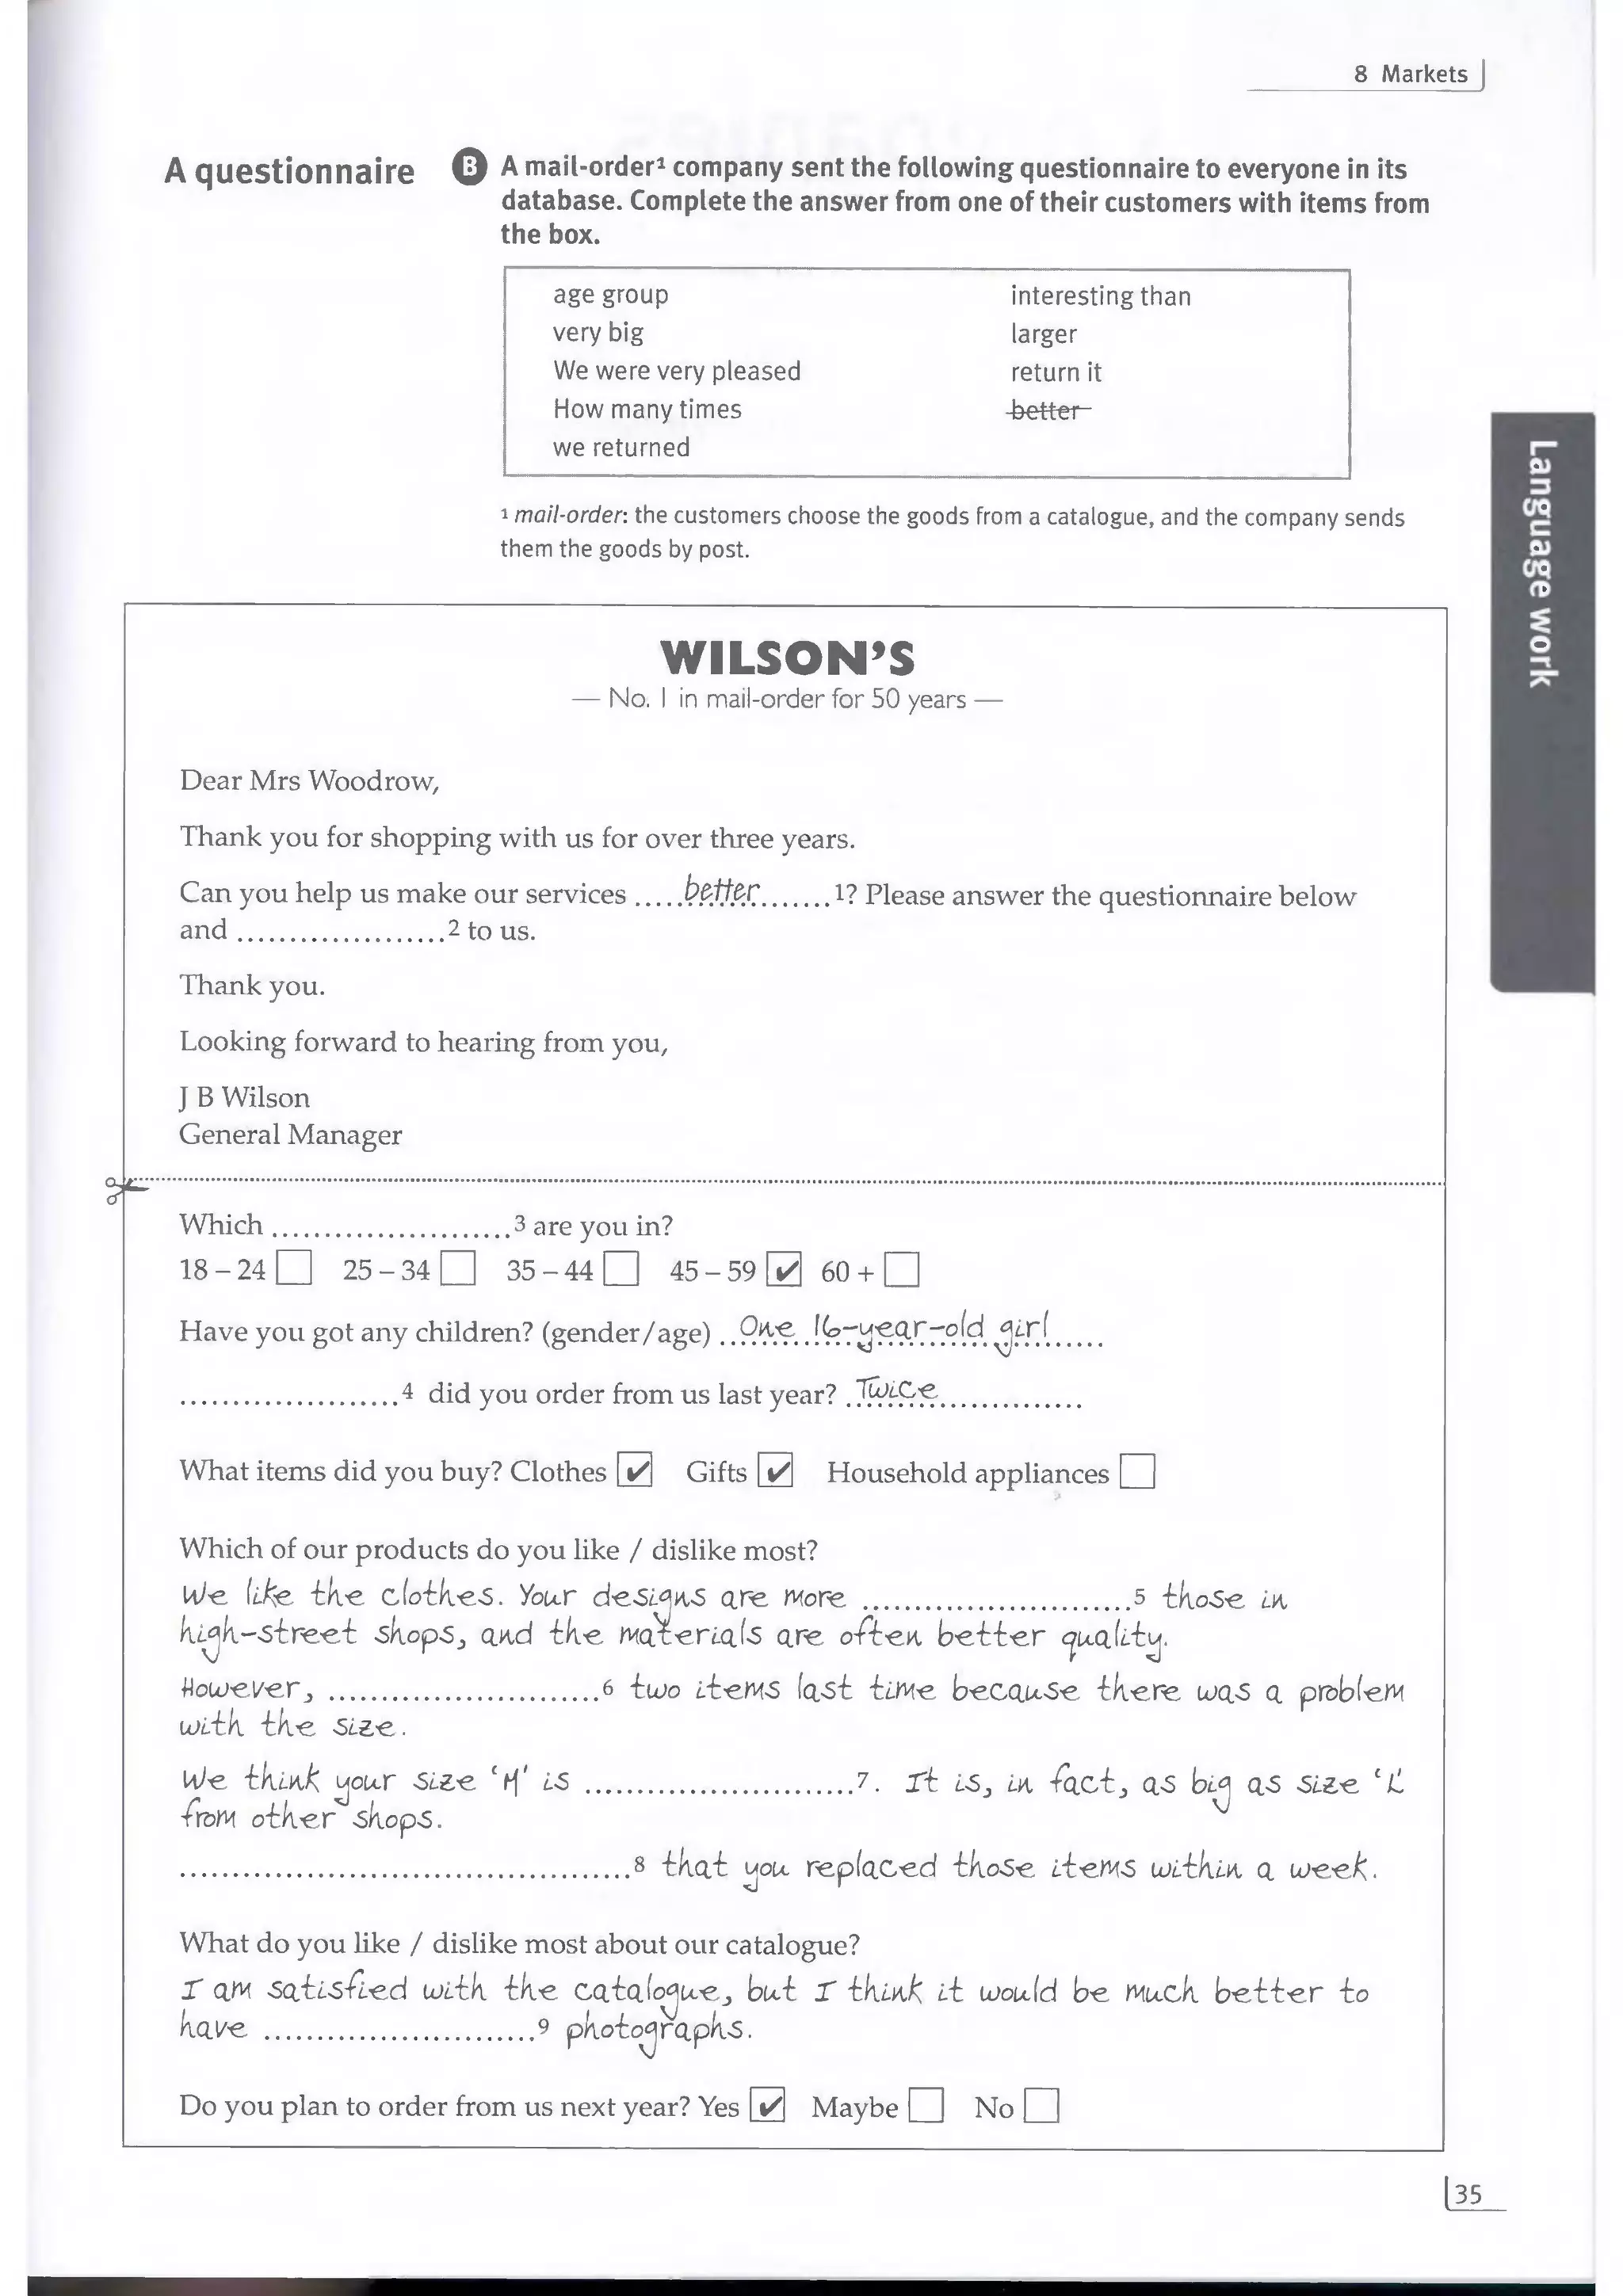 8 Markets
A questionnaire
B A mail-order¹ company sent the following questionnaire to everyone in its
database. Complete the answer from one of their customers with items from
the box.
age group
very big
We were very pleased
How many times
we returned
interesting than
larger
return it
better
¹ mail-order: the customers choose the goods from a catalogue, and the company sends
them the goods by post.
Language work
WILSON’S
— No. 1 in mail-order for 50 years —
Dear Mrs Woodrow,
Thank you for shopping with us for over three years.
Can you help us make our services .....better.......1? Please answer the questionnaire below
and ....................2 to us.
Thank you.
Looking forward to hearing from you,
J B Wilson
General Manager
Which .......................3 are you in?
18 – 24 ☐ 25 – 34 ☐ 35 – 44 ☐ 45 – 59 ☑ 60 + ☐
Have you got any children? (gender/age) ..One 16-year-old girl.....
.....................4 did you order from us last year? .Twice..............
What items did you buy? Clothes ☑ Gifts ☑ Household appliances ☐
Which of our products do you like / dislike most?
We like the clothes. Your designs are more ..........................5 those in
high-street shops, and the materials are often better quality.
However, ..........................6 two items last time because there was a problem
with the size.
We think your size ‘M’ is ..........................7. It is, in fact, as big as size ‘L’
from other shops.
...........................................8 that you replaced those items within a week.
What do you like / dislike most about our catalogue?
I am satisfied with the catalogue, but I think it would be much better to
have ..........................9 photographs.
Do you plan to order from us next year? Yes ☑ Maybe ☐ No ☐
35